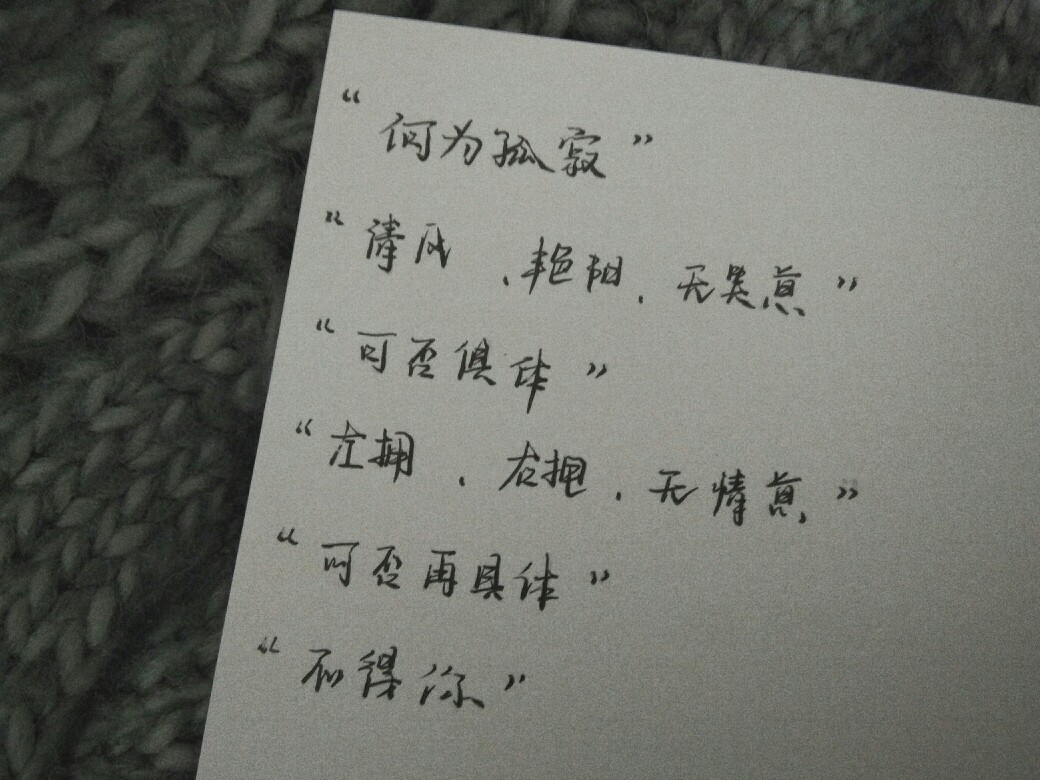 “何为孤寂”
“清风、艳阳、无笑意”
“可否俱体”
“左拥、右抱、无情意”
“可否再具体”
“不得你”